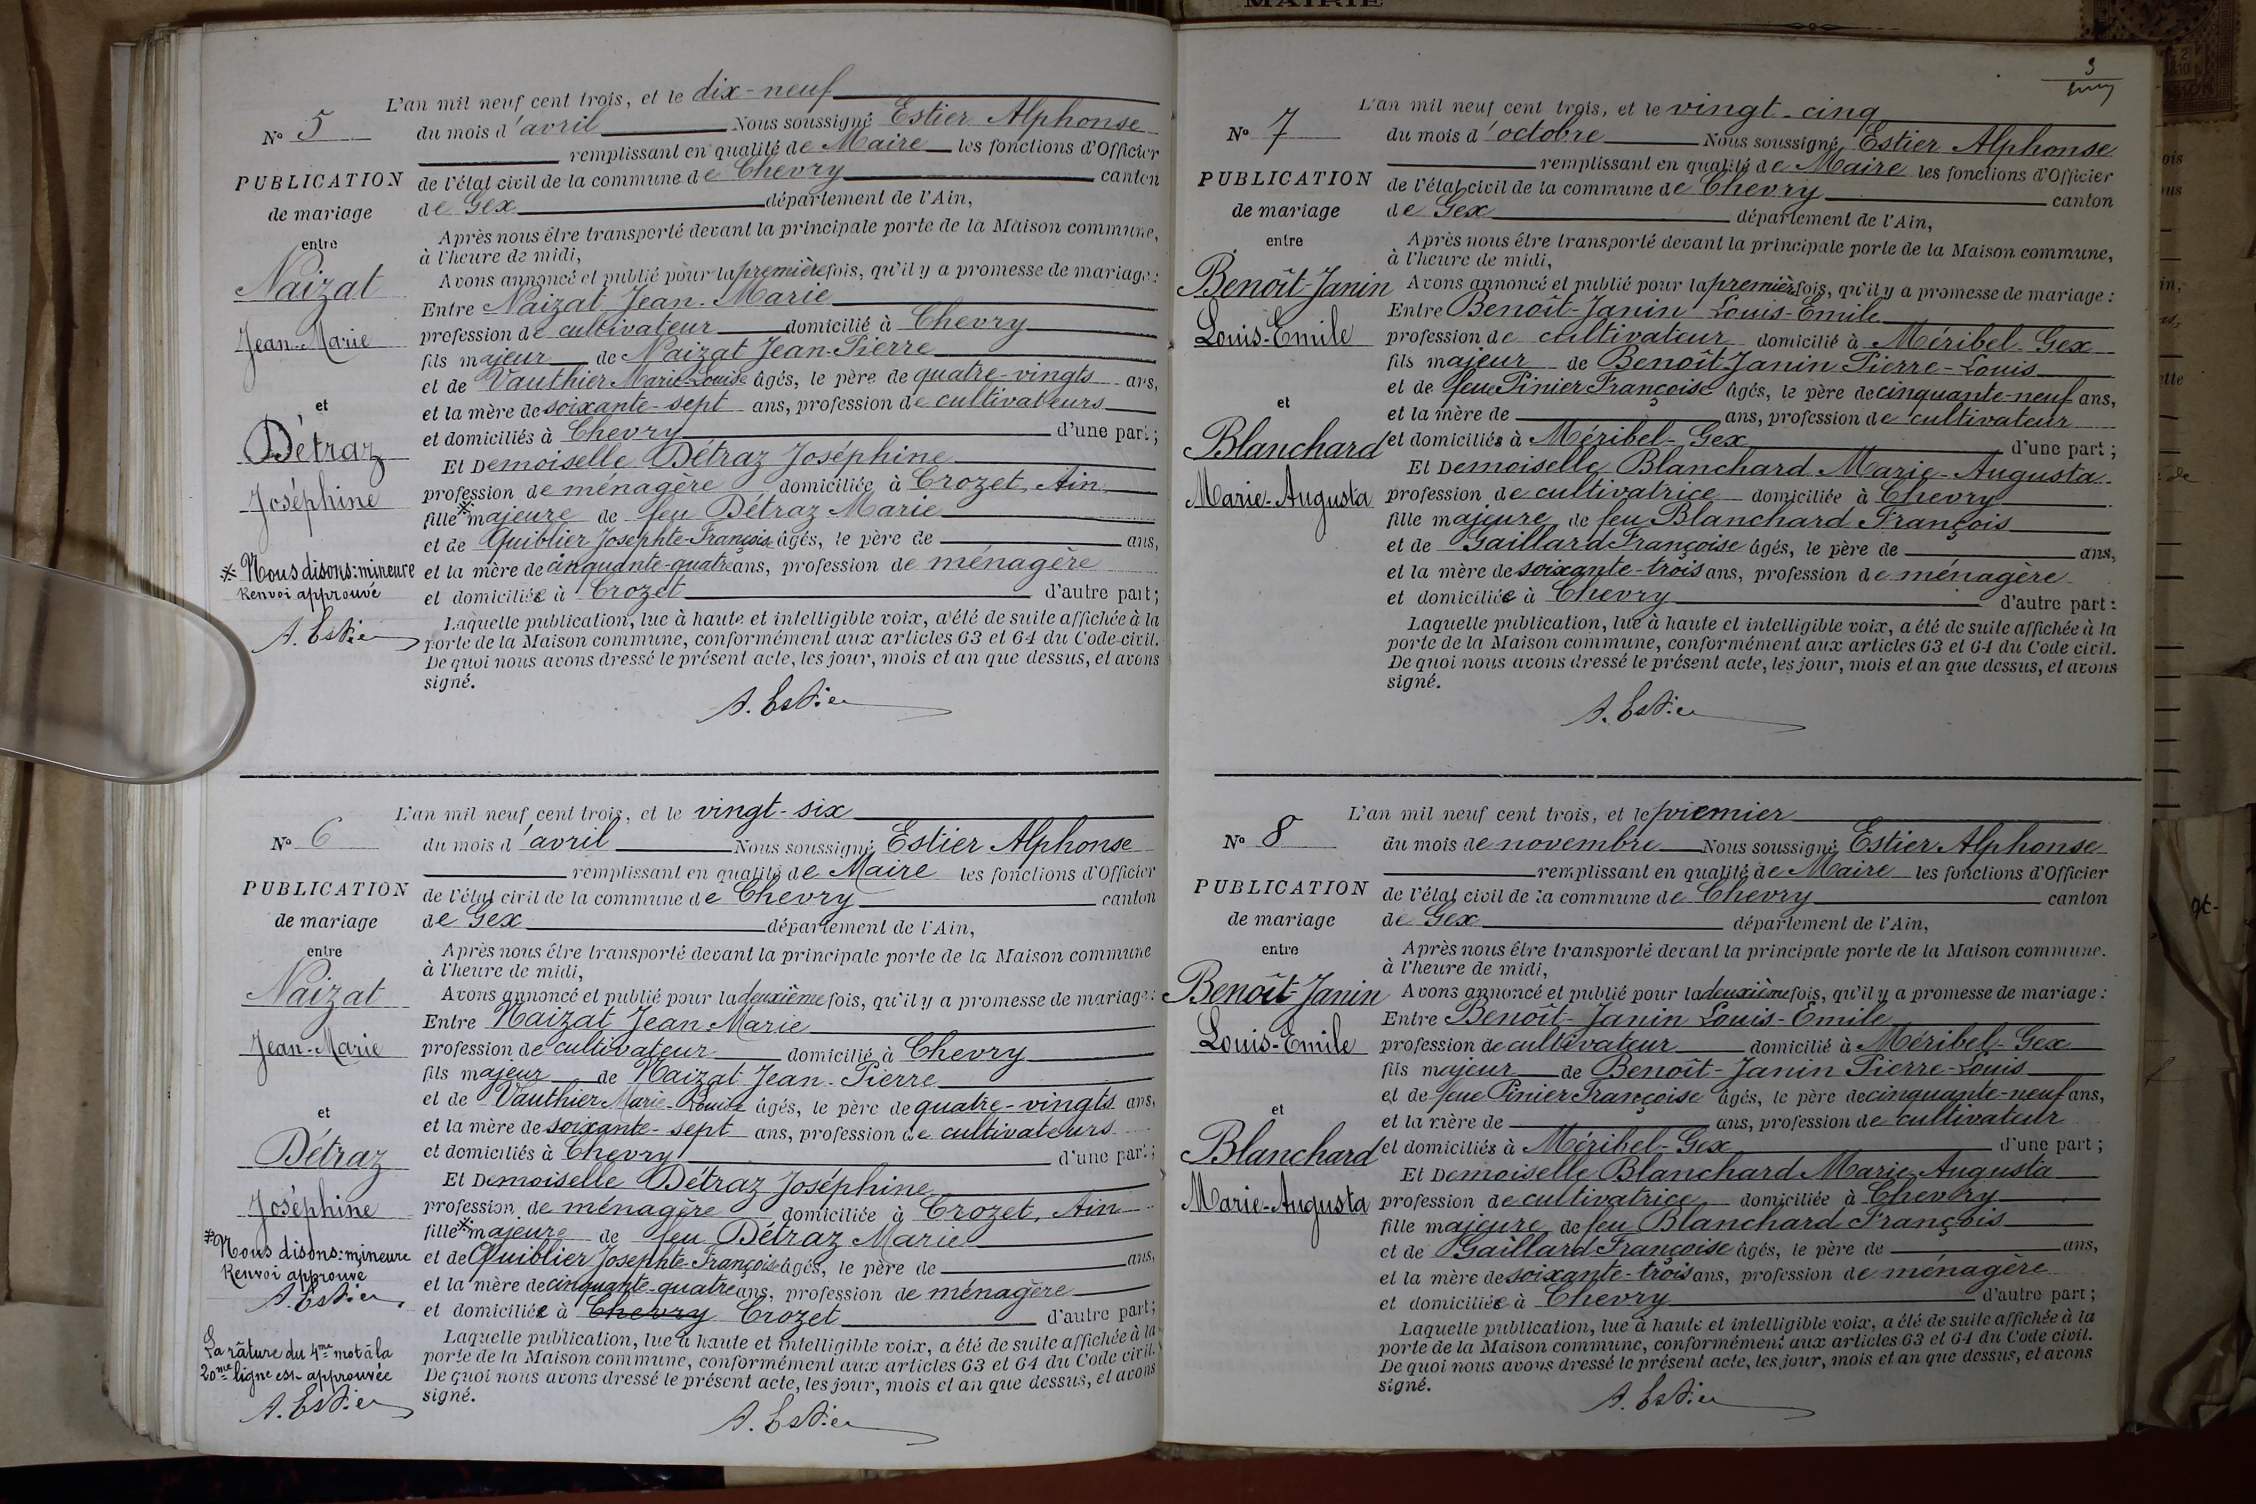 MAIRIE
L'an mil neuf cent trois, et le dix-neuf
No 5
du mois d'avril Nous soussigné Estier Alphonse
remplissant en qualité de Maire les fonctions d'Officier
PUBLICATION
de l'état civil de la commune de Chevry canton
de mariage
de Gex département de l'Ain,
entre
Après nous être transporté devant la principale porte de la Maison commune,
à l'heure de midi,
Naizat
Avons annoncé et publié pour la première fois, qu'il y a promesse de mariage :
Entre Naizat Jean-Marie
Jean-Marie
profession de cultivateur domicilié à Chevry
fils majeur de Naizat Jean-Pierre
et de Vauthier Marie-Louise âgés, le père de quatre-vingts ans,
et
et la mère de soixante-sept ans, profession de cultivateurs
et domiciliés à Chevry d'une part ;
Détraz
Et Demoiselle Détraz Joséphine
Joséphine
profession de ménagère domiciliée à Crozet, Ain
fille * majeure de feu Détraz Marie
et de Quiblier Josephte-Françoise âgés, le père de ans,
* Nous disons : mineure
et la mère de cinquante-quatre ans, profession de ménagère
Renvoi approuvé
et domiciliée à Crozet d'autre part ;
A. Estier
Laquelle publication, lue à haute et intelligible voix, a été de suite affichée à la
porte de la Maison commune, conformément aux articles 63 et 64 du Code civil.
De quoi nous avons dressé le présent acte, les jour, mois et an que dessus, et avons
signé.
A. Estier
L'an mil neuf cent trois, et le vingt-six
No 6
du mois d'avril Nous soussigné Estier Alphonse
remplissant en qualité de Maire les fonctions d'Officier
PUBLICATION
de l'état civil de la commune de Chevry canton
de mariage
de Gex département de l'Ain,
entre
Après nous être transporté devant la principale porte de la Maison commune
à l'heure de midi,
Naizat
Avons annoncé et publié pour la deuxième fois, qu'il y a promesse de mariage :
Entre Naizat Jean Marie
Jean-Marie
profession de cultivateur domicilié à Chevry
fils majeur de Naizat Jean-Pierre
et de Vauthier Marie-Louise âgés, le père de quatre-vingts ans,
et
et la mère de soixante-sept ans, profession de cultivateurs
et domiciliés à Chevry d'une part ;
Détraz
Et Demoiselle Détraz Joséphine
Joséphine
profession de ménagère domiciliée à Crozet, Ain
fille * majeure de feu Détraz Marie
* Nous disons : mineure
et de Quiblier Josephte-Françoise âgés, le père de ans,
Renvoi approuvé
et la mère de cinquante-quatre ans, profession de ménagère
A. Estier
et domiciliée à Chevry Crozet d'autre part ;
Laquelle publication, lue à haute et intelligible voix, a été de suite affichée à la
La râture du 4me mot à la
porte de la Maison commune, conformément aux articles 63 et 64 du Code civil.
20me ligne est approuvée
De quoi nous avons dressé le présent acte, les jour, mois et an que dessus, et avons
signé.
A. Estier
A. Estier
3
L'an mil neuf cent trois, et le vingt-cinq
No 7
du mois d'octobre Nous soussigné Estier Alphonse
remplissant en qualité de Maire les fonctions d'Officier
PUBLICATION
de l'état civil de la commune de Chevry canton
de mariage
de Gex département de l'Ain,
entre
Après nous être transporté devant la principale porte de la Maison commune,
à l'heure de midi,
Benoît-Janin
Avons annoncé et publié pour la première fois, qu'il y a promesse de mariage :
Entre Benoît-Janin Louis-Emile
Louis-Emile
profession de cultivateur domicilié à Méribel-Gex
fils majeur de Benoît-Janin Pierre-Louis
et de feue Pinier Françoise âgés, le père de cinquante-neuf ans,
et
et la mère de ans, profession de cultivateur
Blanchard
et domiciliés à Méribel-Gex d'une part ;
Et Demoiselle Blanchard Marie-Augusta
Marie-Augusta
profession de cultivatrice domiciliée à Chevry
fille majeure de feu Blanchard François
et de Gaillard Françoise âgés, le père de ans,
et la mère de soixante-trois ans, profession de ménagère
et domiciliée à Chevry d'autre part :
Laquelle publication, lue à haute et intelligible voix, a été de suite affichée à la
porte de la Maison commune, conformément aux articles 63 et 64 du Code civil.
De quoi nous avons dressé le présent acte, les jour, mois et an que dessus, et avons
signé.
A. Estier
L'an mil neuf cent trois, et le premier
No 8
du mois de novembre Nous soussigné Estier Alphonse
remplissant en qualité de Maire les fonctions d'Officier
PUBLICATION
de l'état civil de la commune de Chevry canton
de mariage
de Gex département de l'Ain,
entre
Après nous être transporté devant la principale porte de la Maison commune.
à l'heure de midi,
Benoît-Janin
Avons annoncé et publié pour la deuxième fois, qu'il y a promesse de mariage :
Entre Benoît-Janin Louis-Emile
Louis-Emile
profession de cultivateur domicilié à Méribel-Gex
fils majeur de Benoît-Janin Pierre-Louis
et de feue Pinier Françoise âgés, le père de cinquante-neuf ans,
et
et la mère de ans, profession de cultivateur
Blanchard
et domiciliés à Méribel-Gex d'une part ;
Et Demoiselle Blanchard Marie-Augusta
Marie-Augusta
profession de cultivatrice domiciliée à Chevry
fille majeure de feu Blanchard François
et de Gaillard Françoise âgés, le père de ans,
et la mère de soixante-trois ans, profession de ménagère
et domiciliée à Chevry d'autre part ;
Laquelle publication, lue à haute et intelligible voix, a été de suite affichée à la
porte de la Maison commune, conformément aux articles 63 et 64 du Code civil.
De quoi nous avons dressé le présent acte, les jour, mois et an que dessus, et avons
signé.
A. Estier